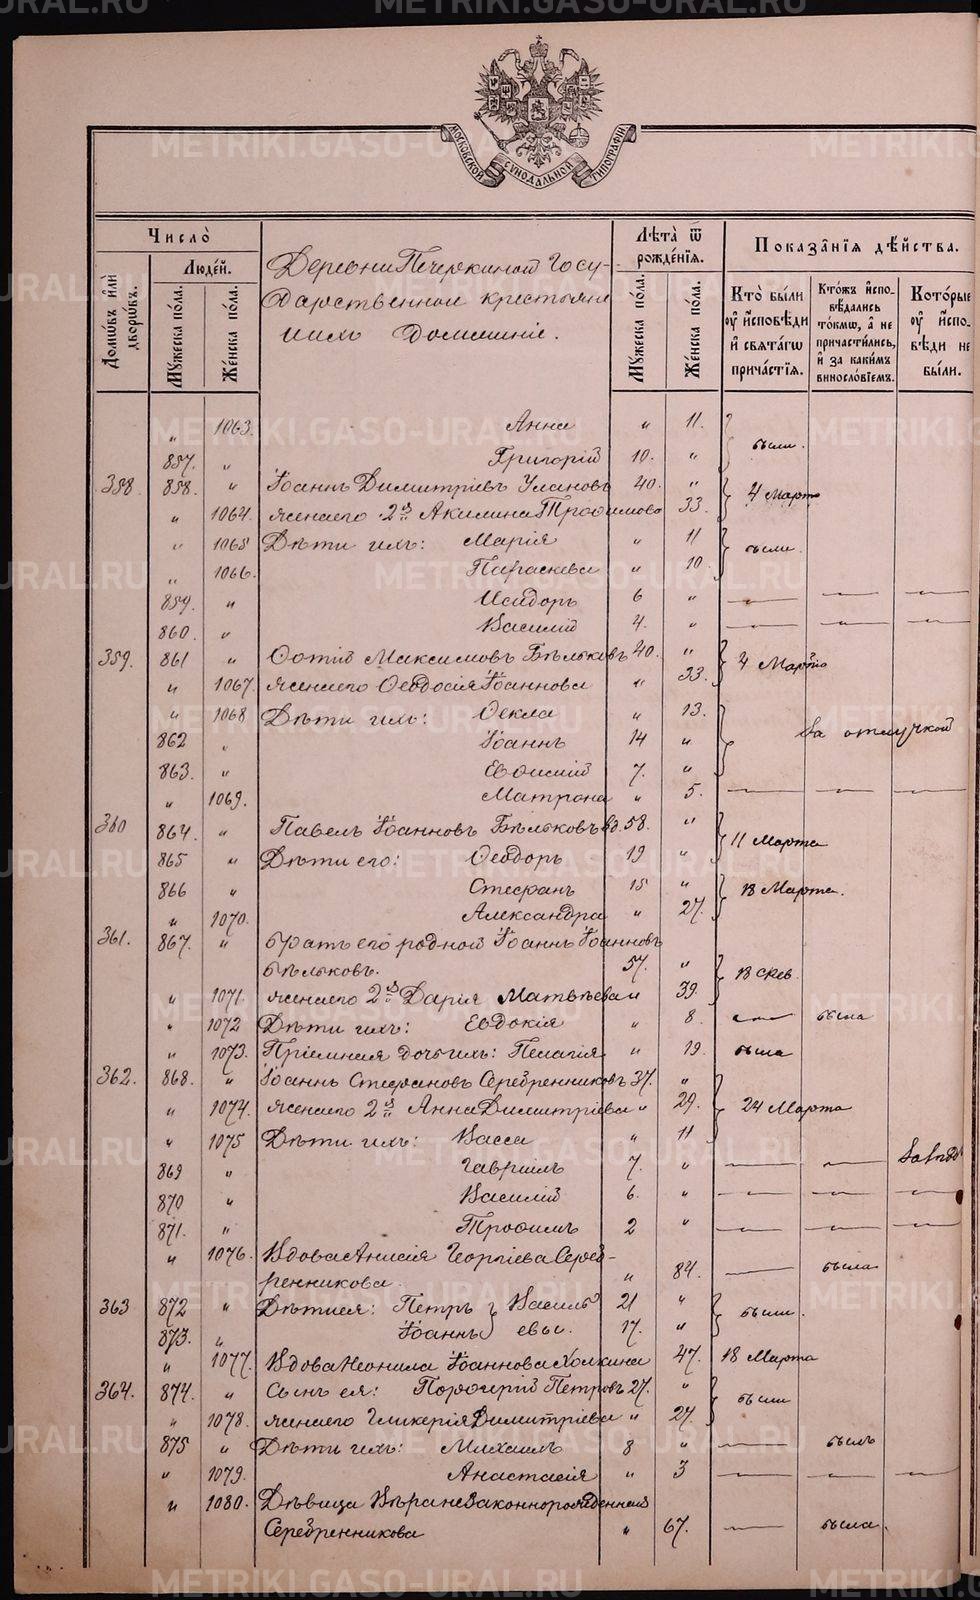 METRIKI.GASO-URAL.RU
МОСКОВСКОЙ СѴНОДАЛЬНОЙ ТИПОГРАФІИ
Число̀
Домѡ́въ и҆лѝ дворѡ́въ.
Люде́й.
Мꙋжеска по́ла.
Же́нска по́ла.
Деревни Печеркиной Госу-
дарственное крестьяне
ихъ домашніе.
Лѣта̀ ѿ рожде́нїѧ.
Мꙋжеска по́ла.
Же́нска по́ла.
Показа́нїѧ дѣ́йства.
Кто̀ бы́ли ᲂу҆ и҆сповѣди и҆ свѧта́гѡ прича́стїѧ.
Кто́жъ и҆спо-вѣдались то́кмѡ, а҆ не причасти́лись, и҆ за каки́мъ винослові́емъ.
Кото́рые ᲂу҆ и҆спо-вѣди не бы́ли.
„ 1063. Анна „ 11.
857. „ Григорій 10. „ были.
358. 858. „ Іоаннъ Димитріевъ Улановъ 40. „ 4 Марта
„ 1064. жена его 2я Акилина Трофимова 33.
„ 1065 Дѣти ихъ: Марія „ 11
„ 1066. Параскева „ 10. были.
859. „ Исидоръ 6 „ — — —
860. „ Василій 4. „ — — —
359. 861 „ Фотій Максимовъ Бѣльковъ 40. „ 4 Марта
„ 1067. жена его Ѳеодосія Іоаннова „ 33.
„ 1068 Дѣти ихъ: Ѳекла „ 13.
862 „ Іоаннъ 14 „ За отлучкой
863. „ Евѳимій 7. „
„ 1069. Матрона „ 5. — — —
360 864. „ Павелъ Іоанновъ Бѣльковъ вд. 58. „ 11 Марта
865 „ Дѣти его: Ѳеодоръ 19 „
866 „ Стефанъ 15 „ 18 Марта.
„ 1070. Александра „ 27.
361. 867. „ братъ его родной Іоаннъ Іоанновъ
бѣльковъ. 57. „ 18 Фев.
„ 1071. жена его 2я Дарія Матвѣева „ 39.
„ 1072 Дѣти ихъ: Евдокія „ 8. — была
„ 1073. Пріемная дочь ихъ: Пелагія „ 19. была
362. 868. „ Іоаннъ Стефановъ Серебренниковъ 37. „
„ 1074. жена его 2я Анна Димитріева „ 29. 24 Марта
„ 1075 Дѣти ихъ: Васса „ 11
869 „ Гавріилъ 7. „ — —
870 „ Василій 6. „ — — —
871. „ Трофимъ 2 „ — — —
„ 1076. Вдова Анисія Георгіева Сереб-
ренникова. „ 84. — была
363 872 „ Дѣти ея: Петръ Василь 21 „ были.
873. „ Іоаннъ евы. 17. „
„ 1077. Вдова Неонила Іоаннова Холкина 47. 18 Марта
364. 874. „ Сынъ ея: Порфирій Петровъ 27. „ были
„ 1078. жена его Гликерія Димитріева „ 27.
875 „ Дѣти ихъ: Михаилъ 8 „ — былъ
„ 1079. Анастасія „ 3 — — —
„ 1080. Дѣвица Вѣра незаконнорожденная
Серебренникова „ 67. — была.